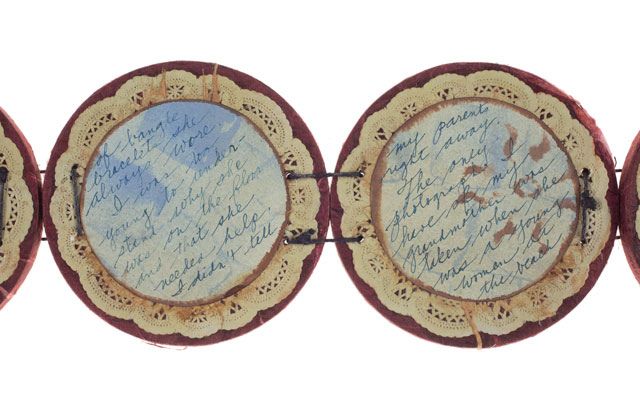 of bangle
bracelet she
always wore.
I was too
young to under-
stand why she
was on the floor
and that she
needed help.
I didn't tell
my parents
right away.
The only
photograph I
have of my
grandmother was
taken when she
was a young
woman at
the beach